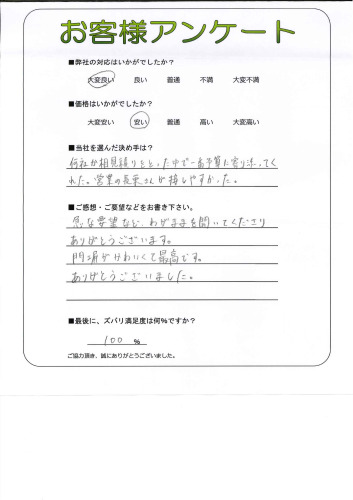 お客様アンケート
■弊社の対応はいかがでしたか？
大変良い 良い 普通 不満 大変不満
■価格はいかがでしたか？
大変安い 安い 普通 高い 大変高い
■当社を選んだ決め手は？
何社か相見積りをとった中で一番予算に寄り添ってく
れた。営業の長束さんが接しやすかった。
■ご感想・ご要望などをお書き下さい。
急な要望など、わがままを聞いてくださり
ありがとうございます。
門扉がかわいくて最高です。
ありがとうございました。
■最後に、ズバリ満足度は何%ですか？
100 %
ご協力頂き、誠にありがとうございました。